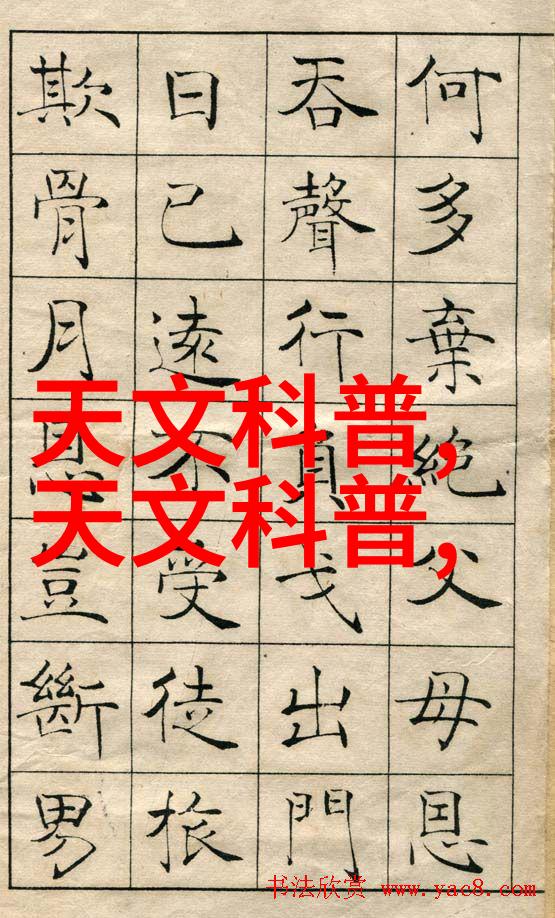 何多棄絕父母恩
吞聲行負戈出門
日已遠不受徒旅
欺骨月恩豈斷男
天文科普,
天文科普,
书法欣赏 www.yac8.com